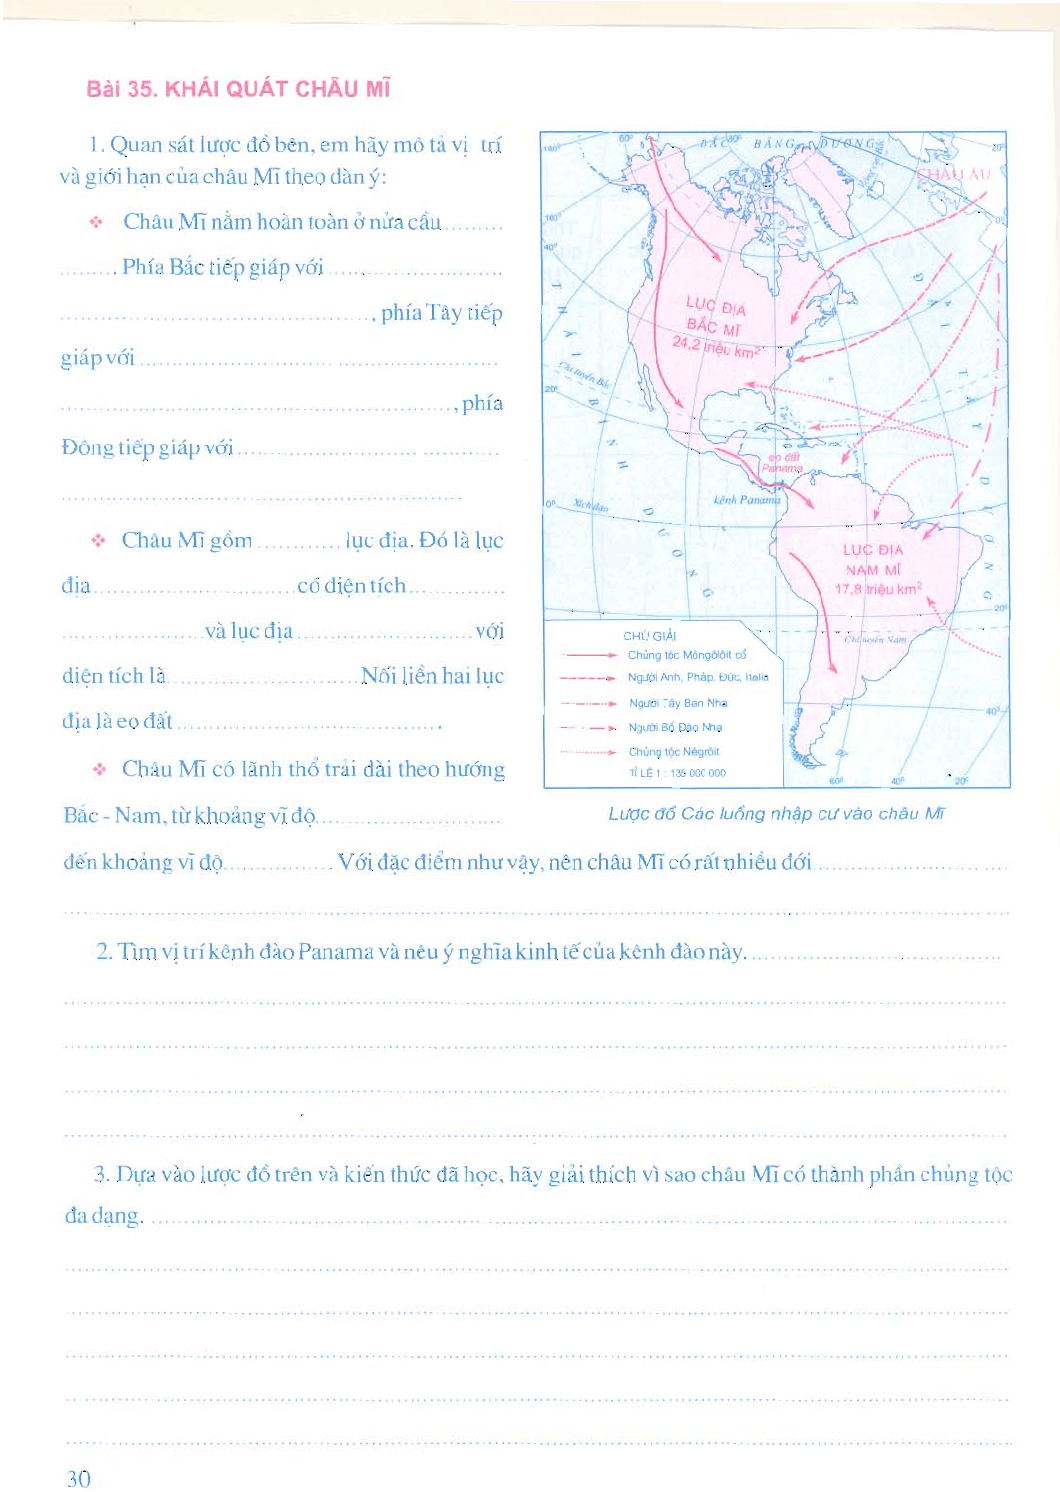 Bài 35. KHÁI QUÁT CHÂU MĨ
1. Quan sát lược đồ bên, em hãy mô tả vị trí
và giới hạn của châu Mĩ theo dàn ý:
❖ Châu Mĩ nằm hoàn toàn ở nửa cầu..........
.......... Phía Bắc tiếp giáp với ..............................
.................................................., phía Tây tiếp
giáp với ............................................................
............................................................, phía
Đông tiếp giáp với ........................................
............................................................
❖ Châu Mĩ gồm ............ lục địa. Đó là lục
địa .............................. có diện tích ...............
.................... và lục địa ......................... với
diện tích là ............................ Nối liền hai lục
địa là eo đất ........................................
❖ Châu Mĩ có lãnh thổ trải dài theo hướng
Bắc - Nam, từ khoảng vĩ độ ..............................
đến khoảng vĩ độ .................. Với đặc điểm như vậy, nên châu Mĩ có rất nhiều đới ..............................
2. Tìm vị trí kênh đào Panama và nêu ý nghĩa kinh tế của kênh đào này. ........................................
3. Dựa vào lược đồ trên và kiến thức đã học, hãy giải thích vì sao châu Mĩ có thành phần chủng tộc
đa dạng. ............................................................
BẮC BĂNG DƯƠNG
Vòng cực Bắc
CHÂU ÂU
LỤC ĐỊA
BẮC MĨ
24,2 triệu km²
Chí tuyến Bắc
THÁI BÌNH DƯƠNG
ĐẠI TÂY DƯƠNG
eo đất
Panama
kênh Panama
Xích đạo
LỤC ĐỊA
NAM MĨ
17,8 triệu km²
Chí tuyến Nam
180°
60°
80°
20°
0°
160°
40°
20°
0°
20°
40°
60°
40°
20°
CHÚ GIẢI
Chủng tộc Môngôlôit cổ
Người Anh, Pháp, Đức, Italia
Người Tây Ban Nha
Người Bồ Đào Nha
Chủng tộc Nêgrôit
TỈ LỆ 1 : 135 000 000
Lược đồ Các luồng nhập cư vào châu Mĩ
30